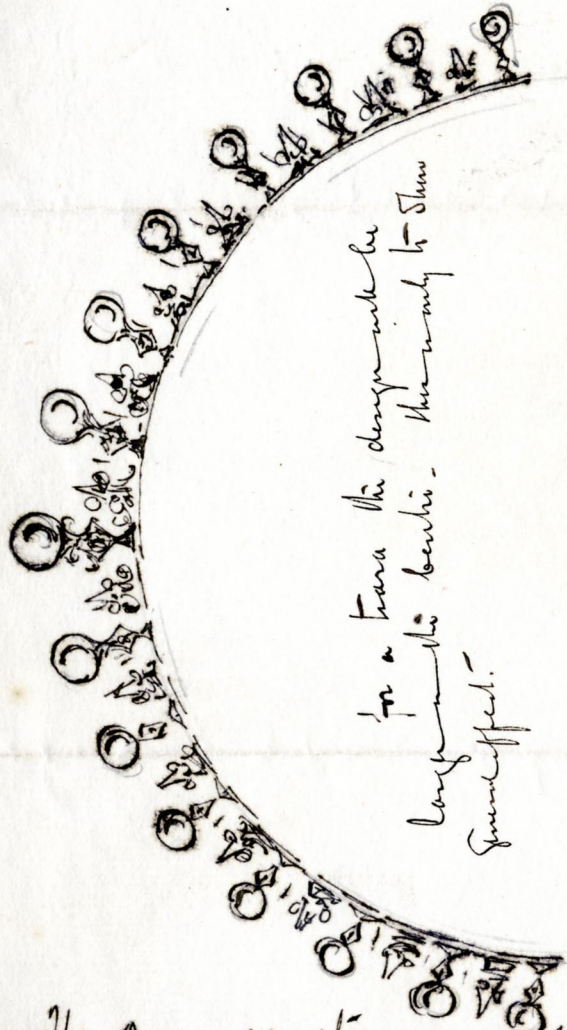 for a tiara the design will be
larger in the centre - this is only to show
General effect.-